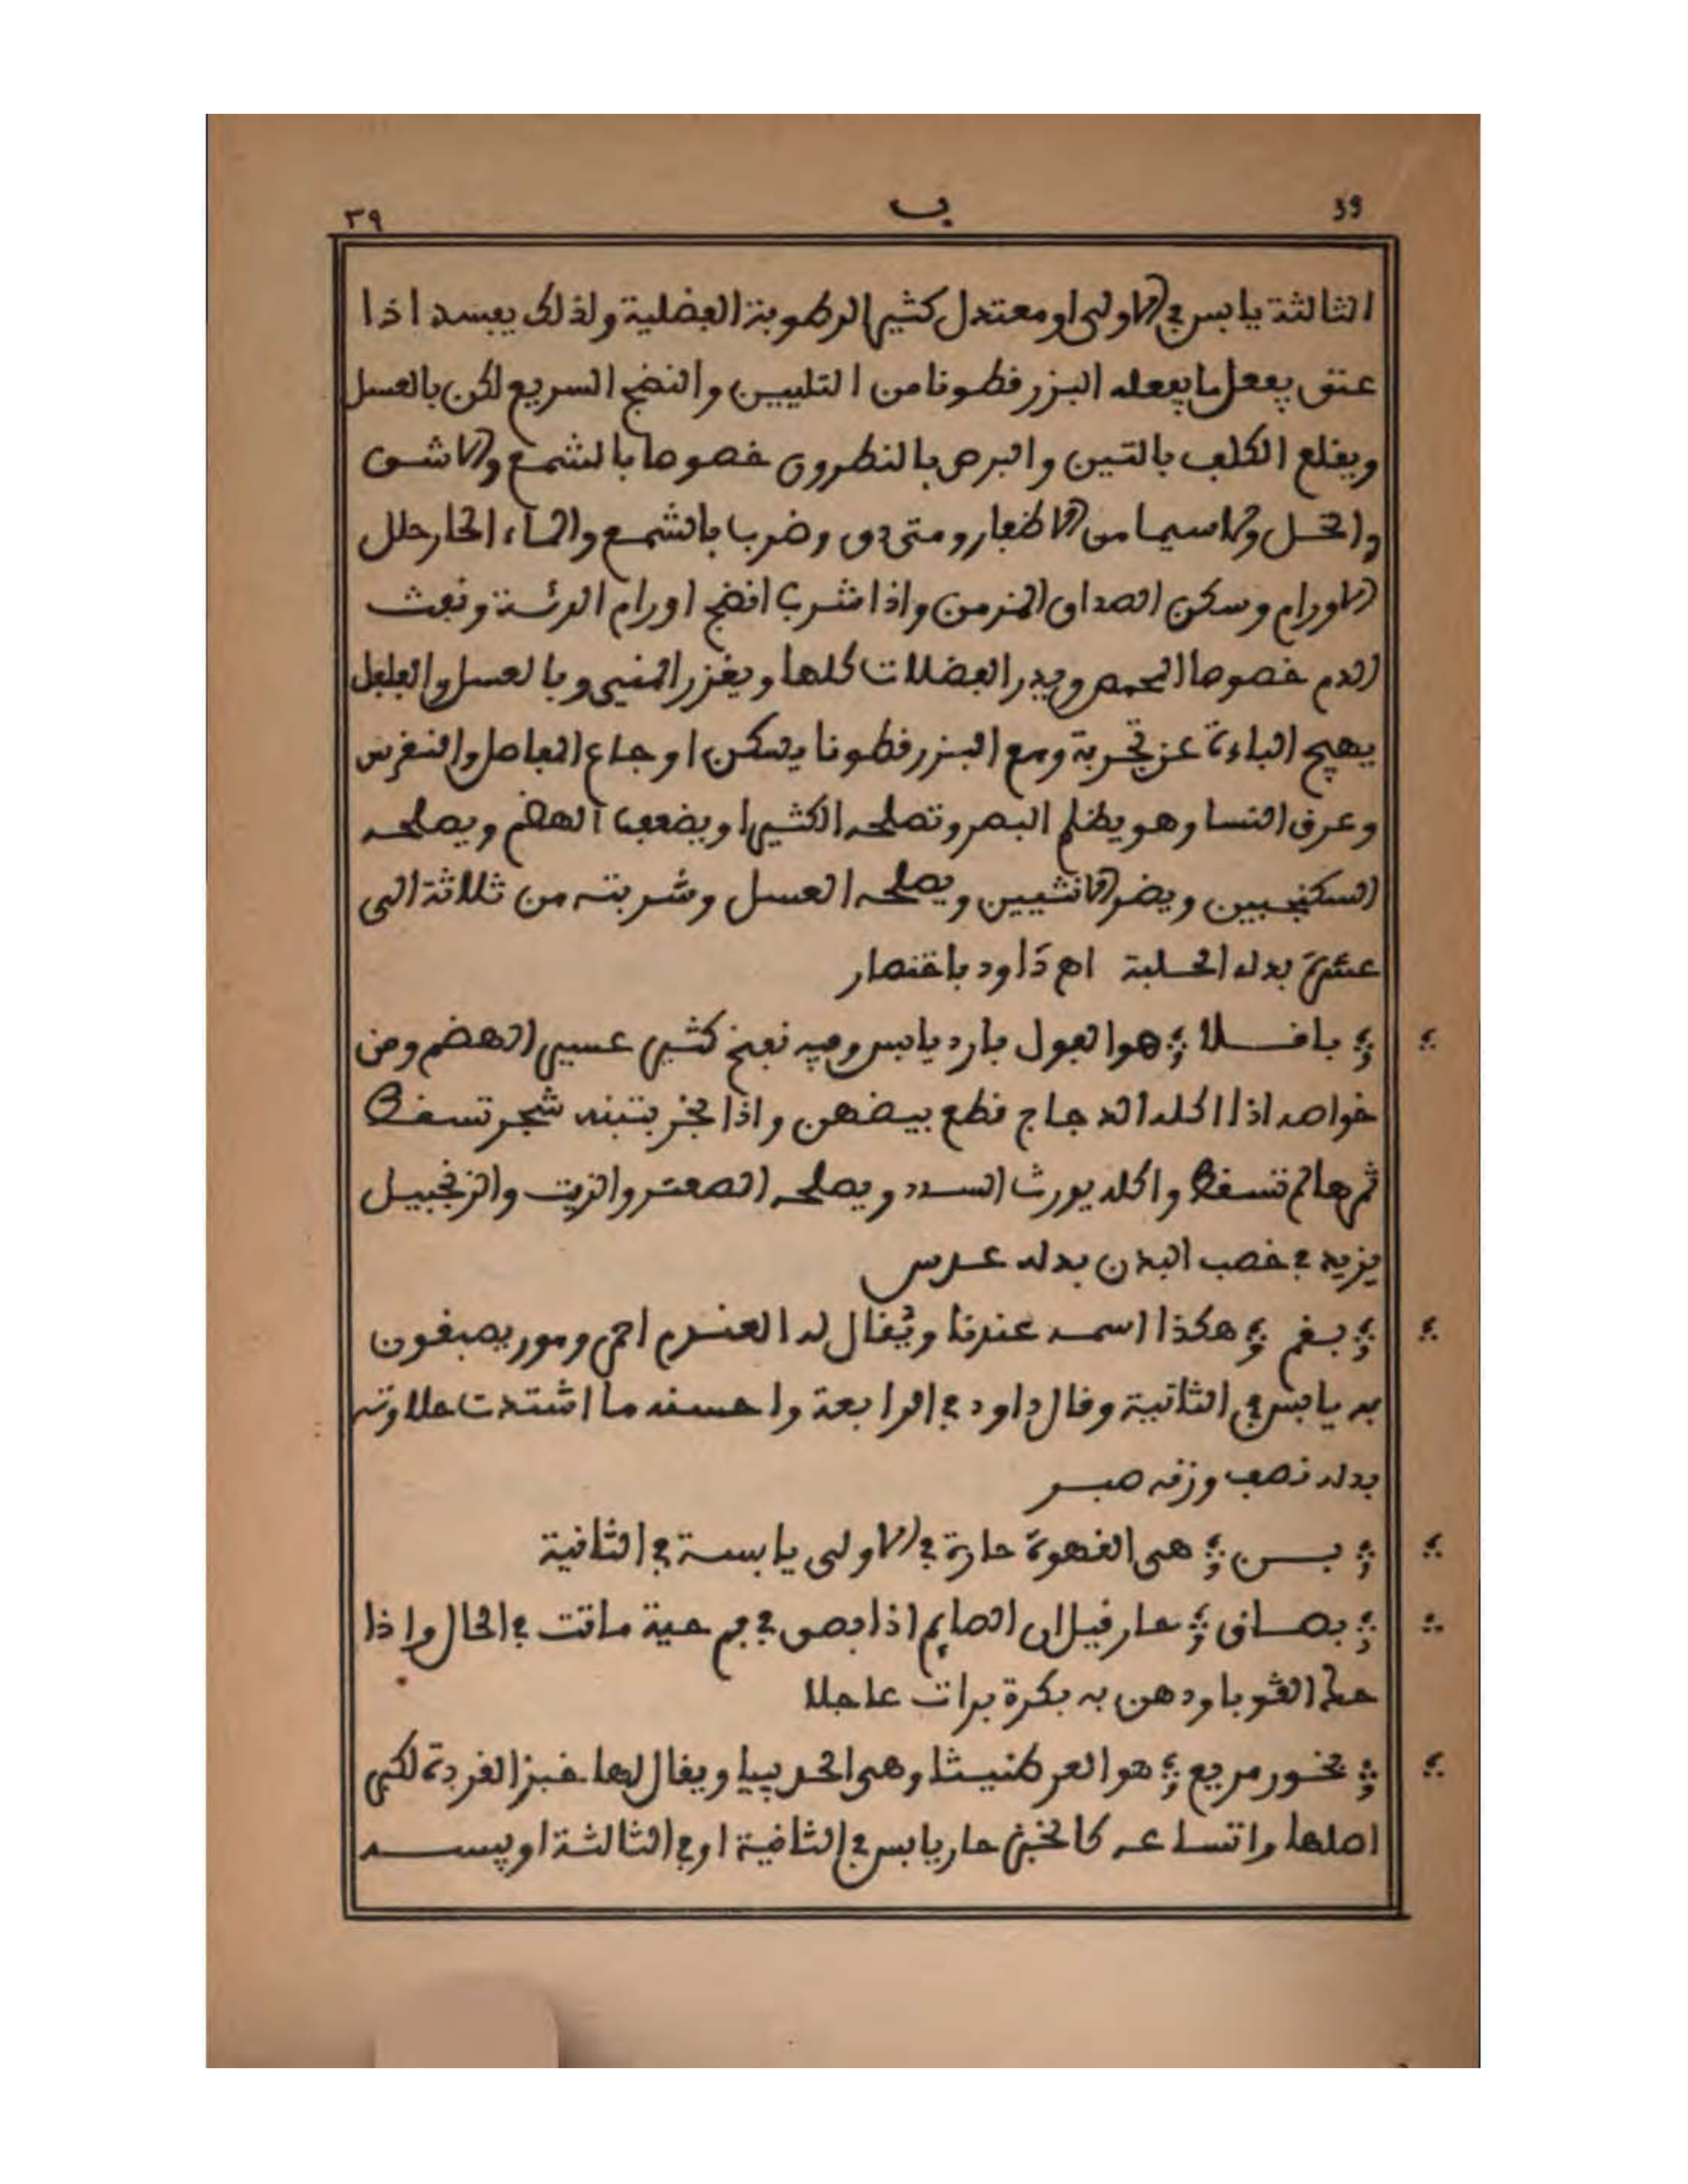 39 ب ٣٩
الثالثة يابس في الاولى او معتدل كثير الرطوبة الفضلية ولذلك يفسد اذا
عتق يفعل ما يفعله البزرقطونا من التليين والنضج السريع لكن بالعسل
ويقلع الكلف بالتين والبرص بالنطرون خصوصا بالشمع والاشق
والخل ولاسيما من الاظفار ومتى دق وضرب بالشمع والماء الحار حلل
الاورام وسكن الصداع المزمن واذا شرب انضج اورام الرئة ونفث
الدم خصوصا المحمص ويدر الفضلات كلها ويغزر المني وبالعسل والفلفل
يهيج الباءة عن تجربة ومع البزرقطونا يسكن اوجاع المفاصل والنقرس
وعرق النسا وهو يظلم البصر وتصلحه الكثيرا ويضعف الهضم ويصلحه
السكنجبين ويضر الانثيين ويصلحه العسل وشربته من ثلاثة الى
عشرة بدله الحلبة اه داود باختصار
باقلا هو الفول بارد يابس وفيه نفخ كثير عسير الهضم ومن
خواصه اذا اكله الدجاج قطع بيضهن واذا بخر بتبنه شجر تسقط
ثمرها لم تسقط واكله يورث السدد ويصلحه الصعتر والزيت والزنجبيل
يزيد في خصب البدن بدله عدس
بقم هكذا اسمه عندنا ويُقال له العندم احمر ومور يصبغون
به يابس في الثانية وقال داود في الرابعة واحسنه ما اشتدت حلاوته
بدله نصف وزنه صبر
بن هي القهوة حارة في الاولى يابسة في الثانية
بصاق حار قيل ان الصايم اذا بصق في فم حية ماتت في الحال واذا
حك القوبا ودهن به بكرة برات عاجلا
بخور مريم هو العرطنيثا وهي الحدبيبا ويقال لها خبز القردة لكبر
اصلها واتساعه كالخبز حار يابس في الثانية او في الثالثة او يبسه